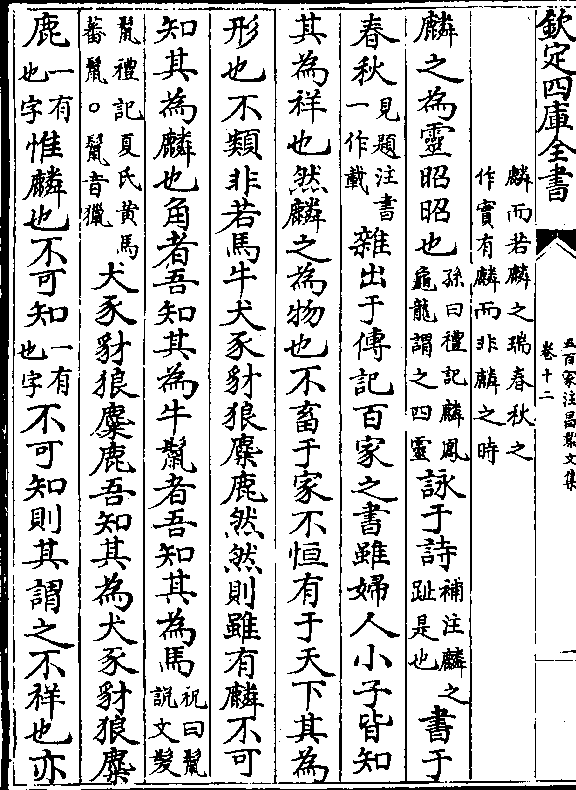 欽定四庫全書
五百家注昌黎文集
卷十二
一
麟而若麟之瑞春秋之
作實有麟而非麟之時
麟之為靈昭昭也孫曰禮記麟鳳
龜龍謂之四靈詠于詩補注麟之
趾是也書于
春秋見題注書
一作載雜出于傳記百家之書雖婦人小子皆知
其為祥也然麟之為物也不畜于家不恒有于天下其為
形也不類非若馬牛犬豕豺狼麋鹿然然則雖有麟不可
知其為麟也角者吾知其為牛鬛者吾知其為馬祝曰鬛
説文髮
鬛禮記夏氏黄馬
蕃鬛○鬛音獵犬豕豺狼麋鹿吾知其為犬豕豺狼麋
鹿一有
也字惟麟也不可知一有
也字不可知則其謂之不祥也亦